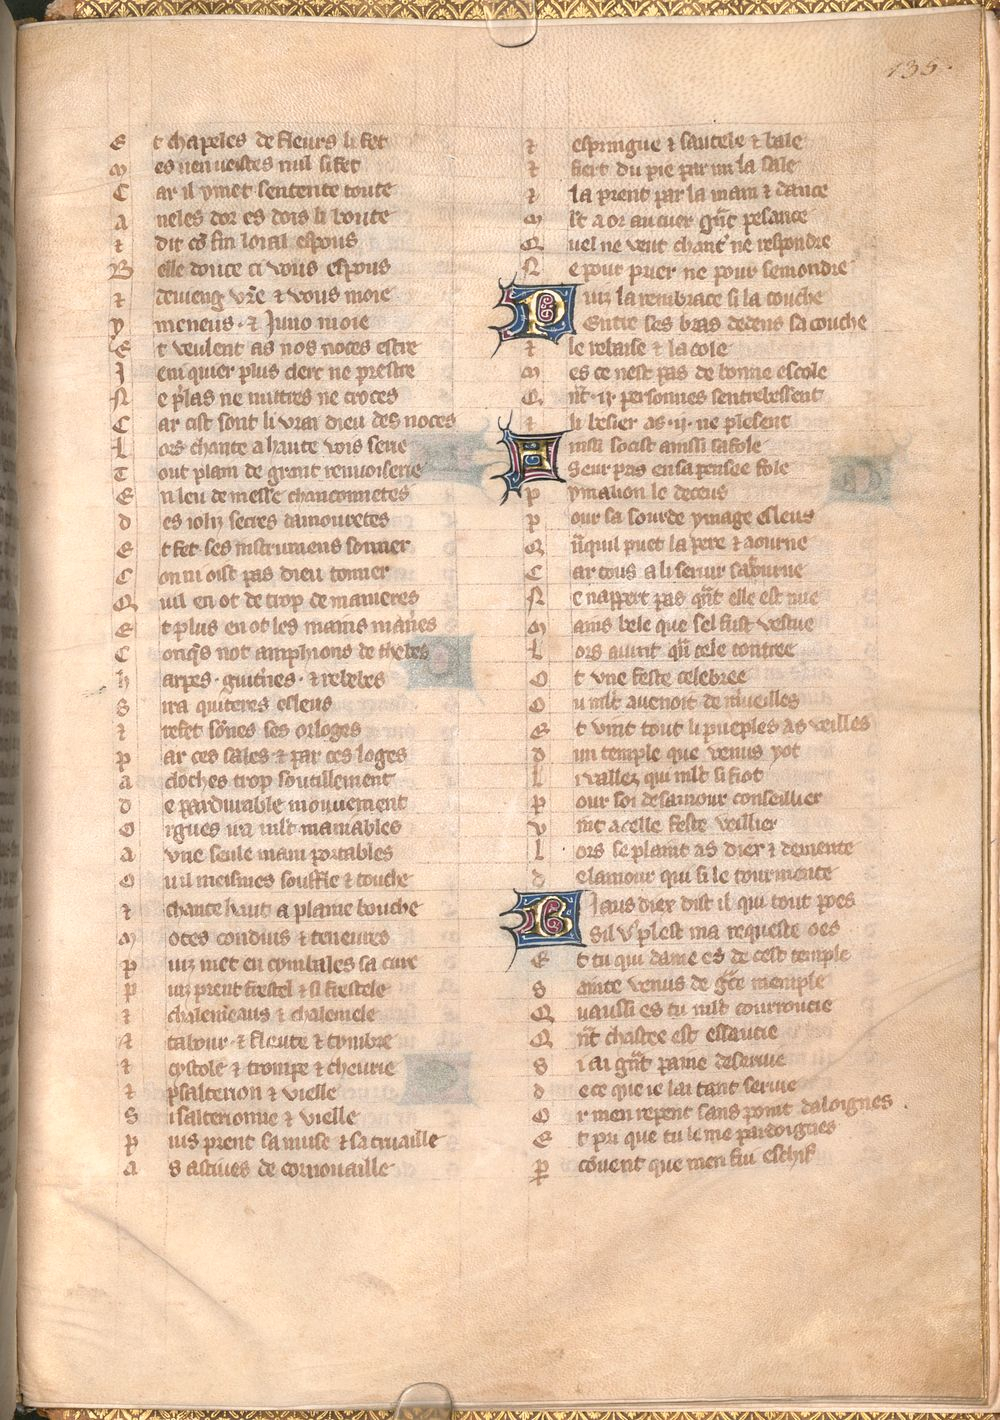 135.
Et chapeles de fleurs li fet
Mes nen veistes nul si fet
Car il y met sentente toute
Aneles dor es dois li boute
⁊ dit cō fin loial espous
Belle douce ci vous espous
⁊ devieng vr̄e ⁊ vous moie
Ymeneus · ⁊ Juno moie
Et veulent as nos noces estre
Jen quier plus clerc ne prestre
Ne p̄las ne mittres ne croces
Car cist sont li vrai dieu des noces
Lors chante a haute vois serie
Tout plain de grant renvoiserie
En leu de messe chanconnetes
des iolis secres damouretes
Et fet ses instrumens sonner
Con ni oist pas dieu tonner
Quil en ot de trop de manieres
Et plus en ot les mains mañes
Conqs not amphions de thebes
harpes · guiternes · ⁊ rebebes
Si ra quiteres esleus
⁊ refet soñes ses orloges
par ces sales ⁊ par ces loges
a cloches trop soutillement
de pardurable mouvement
Orgues i ra mlt maniables
a une seule main portables
Ou il meismes souffle ⁊ touche
⁊ chante haut a plaine bouche
Motes conduis ⁊ teneures
puiz met en cymbales sa cure
puiz prent frestel ⁊ si frestele
⁊ chalemeaus ⁊ chalemele
⁊ tabour · ⁊ fleute ⁊ tymbre
⁊ cystole ⁊ trompe ⁊ chevrie
⁊ psalterion ⁊ vielle
Si salterionne ⁊ vielle
puis prent sa muse ⁊ sa travaille
as astives de cornouaille
⁊ espringue ⁊ sautele ⁊ bale
⁊ fiert du pie par mi la sale
⁊ la prent par la main ⁊ dance
Mlt a or au cuer gñt pesance
Quel ne veut chant' ne respondre
Ne pour prier ne pour semondre
Puiz la rembrace si la couche
Entre ses bras dedens sa couche
⁊ le rebaise ⁊ la cole
Mes ce nest pas de bonne escole
Qñt · ii · personnes sentrebessent
⁊ li besier as · ii · ne plesent
Ainsi socist ainssi safole
Seurpas en sa pensee fole
pymalion le deceus
pour sa sourde ymage esleus
Qñquil puet la pere ⁊ aourne
Car tous a li servir satourne
Ne nappert pas qñt elle est nue
Mains bele que sel fust vestue
Lors avint qñ cele contree
Ot une feste celebree
Ou mlt avenoit de mveilles
Et vint tout li pueples as veilles
dun temple que venus yot
Li vallez qui mlt si fiot
Pour soi de samour conseillier
Vint a celle feste veillier
lors se plaint as diex ⁊ demente
de lamour qui si le tourmente
Biaus diex dist il qui tout poes
Sil v' plest ma requeste oes
Et tu qui dame es de cest temple
Sainte venus de grce memple
Quaussi es tu mlt courroucie
Qñt chastee est essaucie
Si ai gñt paine deservie
de ce que ie lai tant servie
Or men repent sans point daloignes
Et pri que tu le me pardoignes
p covent que men fui eschif